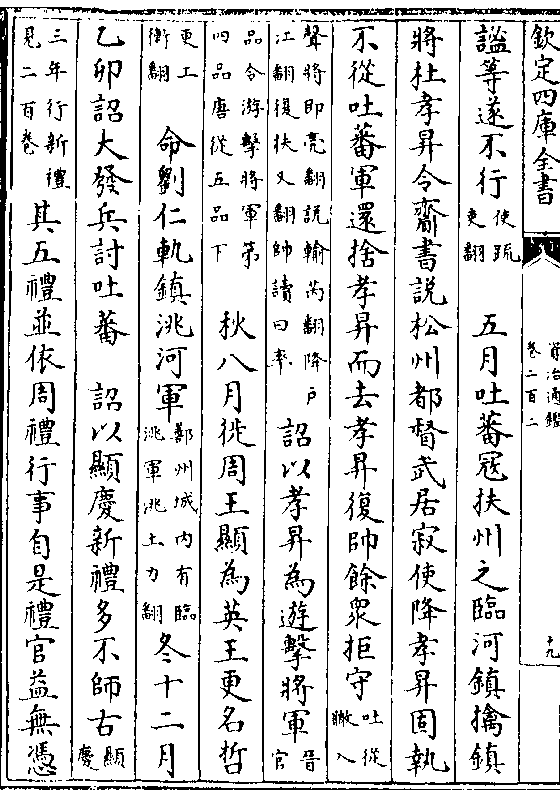 欽定四庫全書
資治通鑑
卷二百二
十九
謐等遂不行使疏吏翻 五月吐蕃冦扶州之臨河鎮擒鎮
將杜孝昇令齎書說松州都督武居寂使降孝昇固執
不從吐蕃軍還捨孝昇而去孝昇復帥餘衆拒守吐從暾入
聲將即亮翻說輸芮翻降户江翻復扶又翻帥讀曰率 詔以孝昇為遊擊將軍晉官
品令游擊將軍第四品唐從五品下 秋八月徙周王顯為英王更名哲
更工衡翻 命劉仁軌鎮洮河軍鄯州城内有臨洮軍洮土刀翻 冬十二月
乙卯詔大發兵討吐蕃 詔以顯慶新禮多不師古顯慶
三年行新禮見二百卷 其五禮並依周禮行事自是禮官益無憑